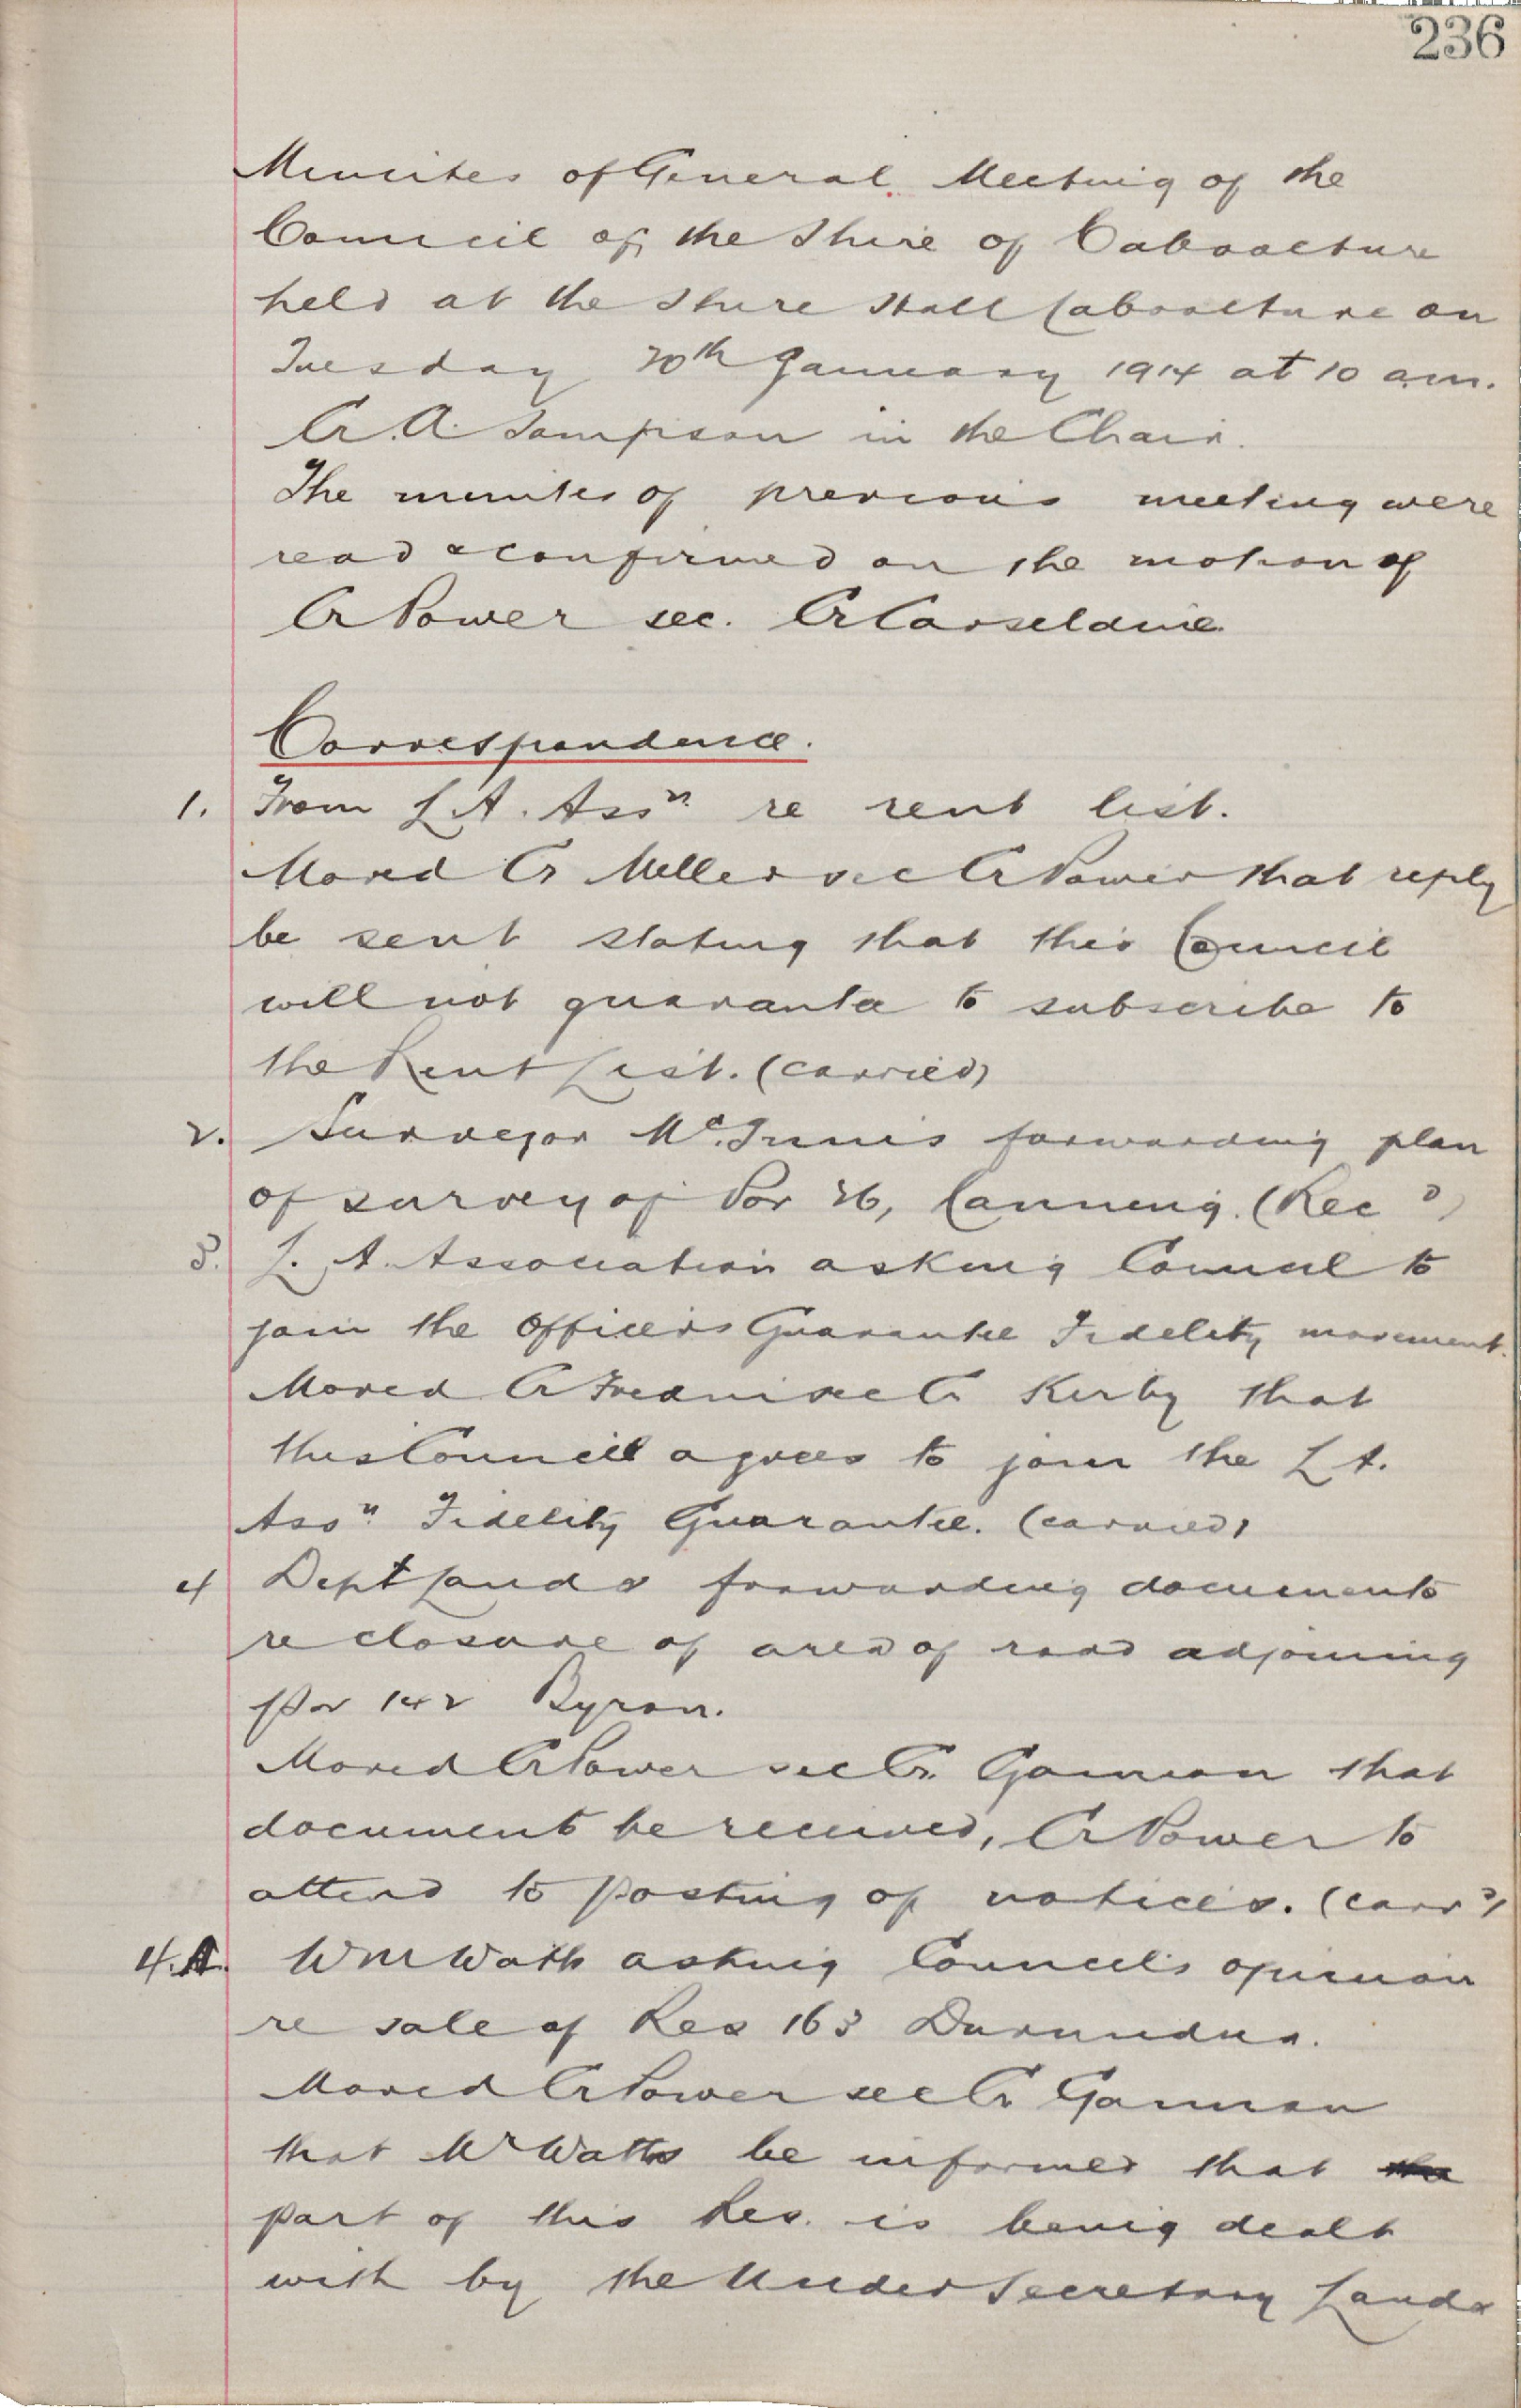 236
Minutes of General Meeting of the
Council of the Shire of Caboolture
held at the Shire Hall Caboolture on
Tuesday 20th January 1914 at 10 a.m.
Cr. A. Sampson in the Chair.
The minutes of previous meeting were
read & confirmed on the motion of
Cr Power sec. Cr Carseldine
Correspondence.
1. From L A. Assn re rent list.
Moved Cr Meller sec Cr Power that reply
be sent stating that this Council
will not guarantee to subscribe to
the Rent List. (carried)
2. Surveyor McInnis forwarding plan
of survey of Por 26, Canning. (Recd)
3. L. A. Association asking Council to
join the Officers Guarantee Fidelity movement.
Moved Cr sec Cr Kirby that
this Council agrees to join the L A.
Assn. Fidelity Guarantee. (carried)
4 Dept Lands forwarding documents
re closure of area of road adjoining
Por 142 Byron.
Moved Cr Power sec Cr. Gannon that
document be received, Cr Power to
attend to posting of notices. (carrd)
4.A. Wm Watts asking Council's opinion
re sale of Res 163 Durundur.
Moved Cr Power sec Cr Gannon
that Mr Watts be informed that the
part of this Res. is being dealt
with by the Under Secretary Lands